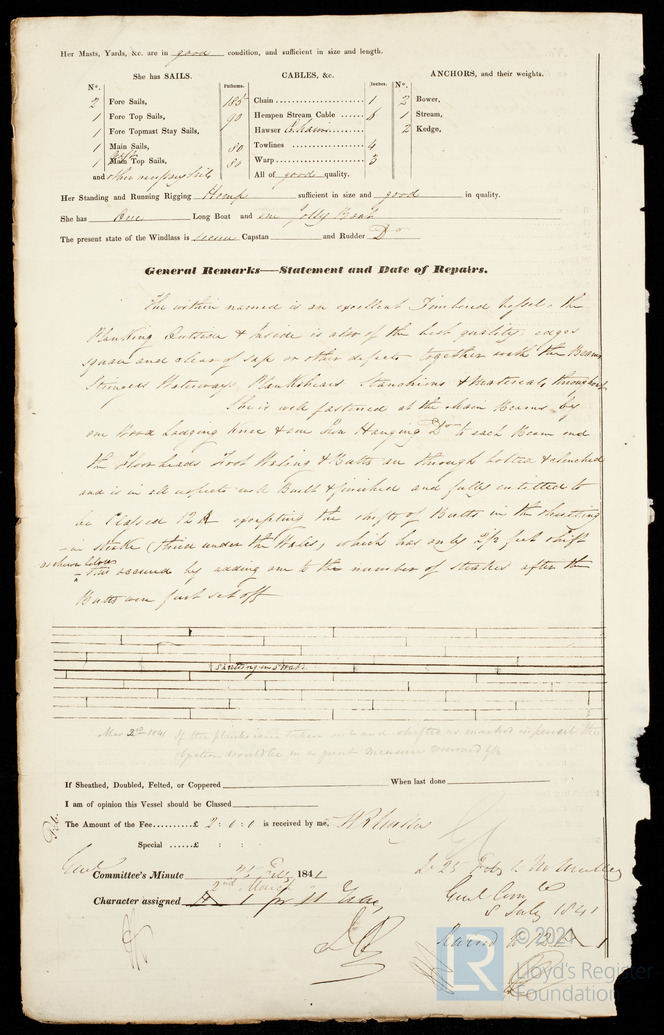 Her Masts, Yards, &c. are in good condition, and sufficient in size and length.
She has SAILS.
CABLES, &c.
ANCHORS, and their weights.
No.
Fathoms.
Inches.
No.
2 Fore Sails, 185 Chain 1 2 Bower,
1 Fore Top Sails, 90 Hempen Stream Cable 6 1 Stream,
1 Fore Topmast Stay Sails, Hawser Chain 2 Kedge,
1 Main Sails, 80 Towlines 4
1 Main Top Sails, 80 Warp 3
and other necessary Sails All of good quality.
Her Standing and Running Rigging Hemp sufficient in size and good in quality.
She has One Long Boat and one Jolly Boat
The present state of the Windlass is secure Capstan and Rudder Do
General Remarks—Statement and Date of Repairs.
The within named is an excellent Timbered Vessel, the
Planking Outside & Inside is also of the best quality, edges
square and clear of sap or other defects together with the Beams
Stringers Waterways, Plankshears Stanchions & Materials throughout
She is well fastened at the Main Beams by
one Wood Lodging Knee & one Iron Hanging Do to each Beam end
the Floorheads Foot Waling & Butts are through bolted & clenched
and is in all respects well Built & finished and fully entitled to
be Classed 12 A excepting the shifts of Butts in the shutting
in strake (third under the Wales) which has only 2½ feet shift
as shewn below
This occurred by adding one to the number of strakes after the
Butts were first set off
Shutting in Strake.
Mar 2nd 1841 If the planks were taken out and shifted as marked in pencil the
objection would be in a great measure removed
If Sheathed, Doubled, Felted, or Coppered When last done
I am of opinion this Vessel should be Classed
The Amount of the Fee £ 2 : 0 : 0 is received by me,
Special £ : :
Committee's Minute 25 Feby 1841
2nd March
Character assigned A 1 for 11 Years
25 Feby
8 July 1841
© 2021
LR
Lloyd's Register
Foundation